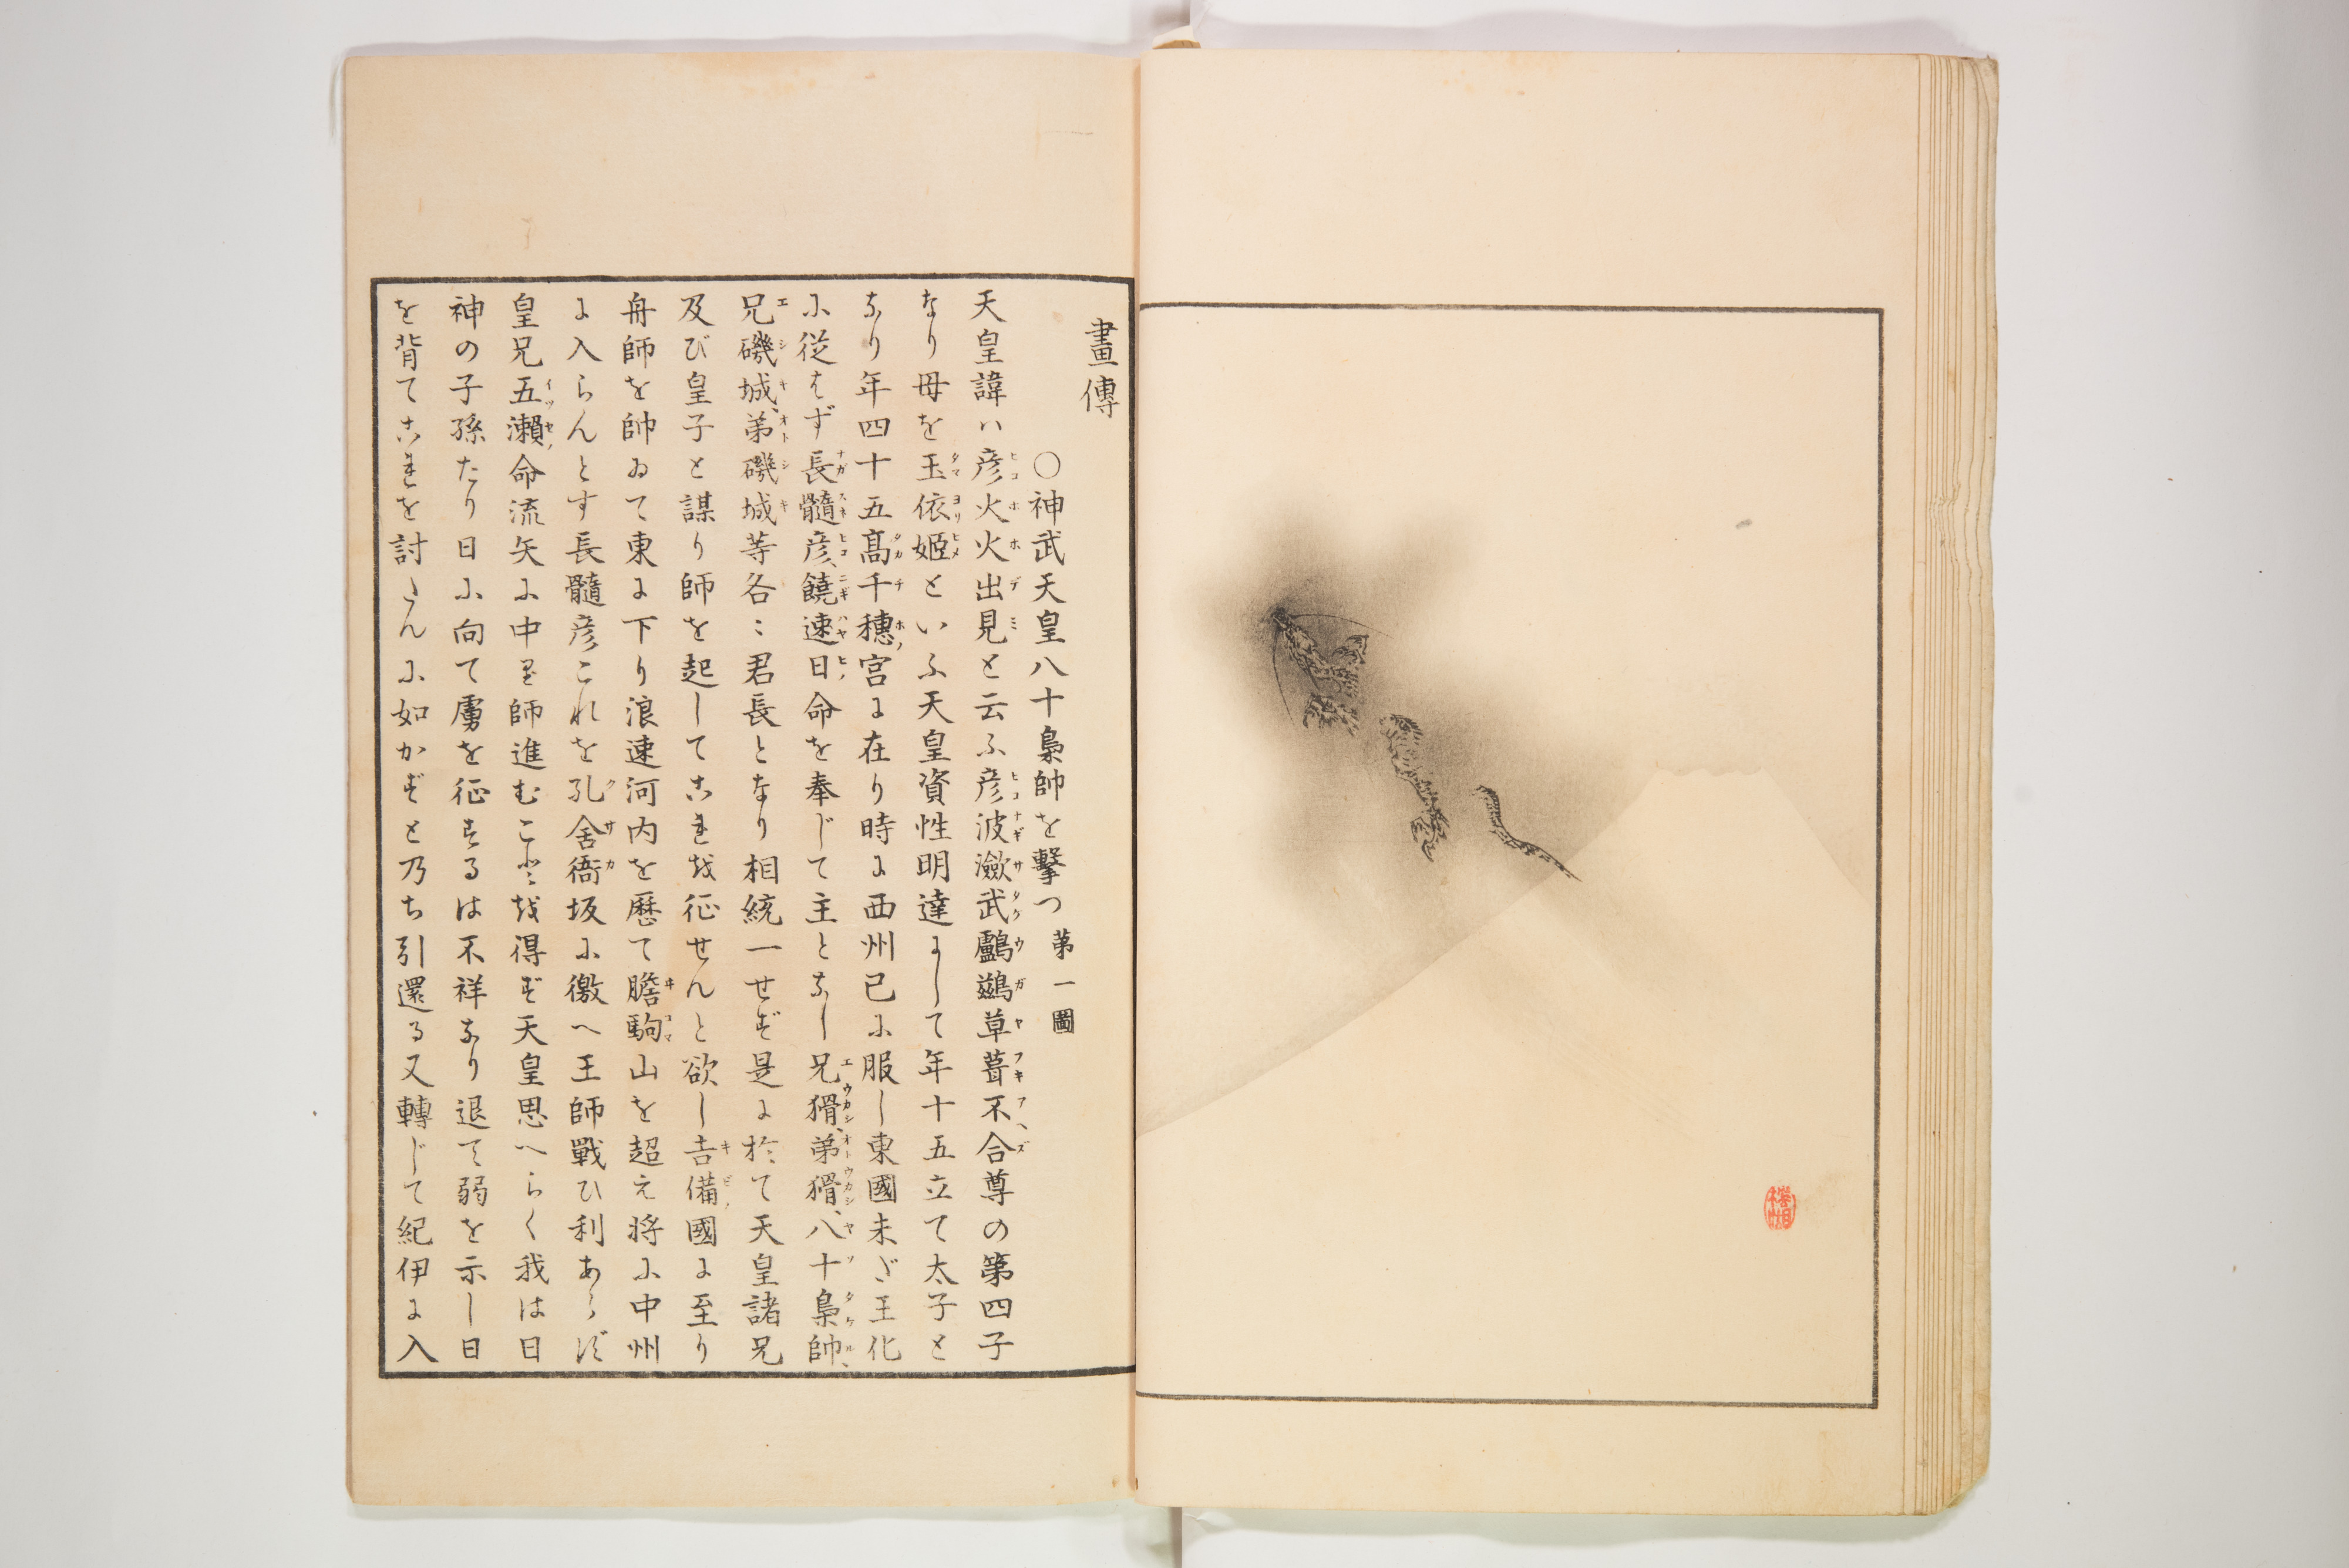 畫傳
○神武天皇八十梟帥を擊つ 第一圖
天皇諱ハ彦火火出見と云ふ彦波瀲武鸕鷀草葺不合尊の第四子
なり母を玉依姬といふ天皇資性明達にして年十五立て太子と
なり年四十五高千穗宮に在り時に西州已に服し東國未だ王化
に從はず長髓彦、饒速日命を奉じて主となし兄猾、弟猾、八十梟帥、
兄磯城、弟磯城等各〻君長となり相統一せず是に於て天皇諸兄
及び皇子と謀り師を起してこれを征せんと欲し吉備國に至り
舟師を帥ゐて東に下り浪速河内を歷て膽駒山を超え將に中州
に入らんとす長髓彦これを孔舍衞坂に徼へ王師戰ひ利あらず
皇兄五瀨命流矢に中り師進むことを得ず天皇思へらく我は日
神の子孫たり日に向て虜を征するは不祥なり退て弱を示し日
を背てこれを討たんに如かずと乃ち引還る又轉じて紀伊に入